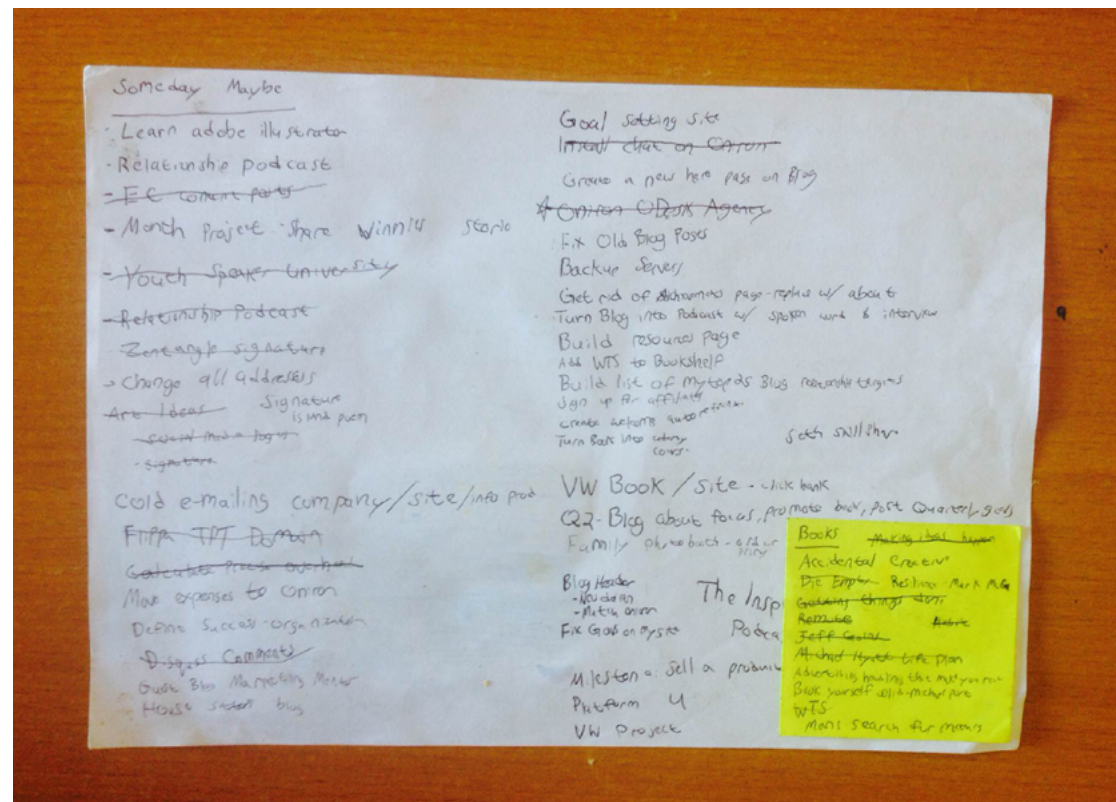 Someday Maybe
- Learn adobe illustrator
- Relationship podcast
- E C content posts
- Month Project - Share Winnies
- Youth Speaker University
- Relationship Podcast
Zentangle signature
→ Change all addresses
Art Ideas Signature
island poem
- social media logos
- signature
cold e-mailing company/site/info prod
Flippa TPT Domain
Calculate Presto overhead
Move expenses to
Define Success - organization
Disqus Comments
Guest Blog Marketing Mentor
House sitters blog
Goal Setting Site
Install chat on
Create a new here page on Blog
ODesk Agency
Fix Old Blog Posts
Backup Servers
Get rid of page - replace w/ about
Turn Blog into Podcast w/ spoken word & interview
Build resources page
Add WTS to Bookshelf
Build list of Blog targets
Sign up for affiliate
create welcome
Turn Book into
cours. Seth Skillshare
VW Book / Site - click bank
Q2 - Blog about focus, promote book, post Quarterly goals
Family photobooth -
Blog Header
- New design
- Match
Fix Goals on my site
The Insp
Podca
Milestone: Sell a
Platform U
VW Project
Books Making ideas happen
Accidental Creative
Die Empty Resilience - Mark
Getting things done
Remote
Jeff Goins
Michael Hyatt Life Plan
Advertising
Book yourself solid - michael port
WTS
Mans search for meaning